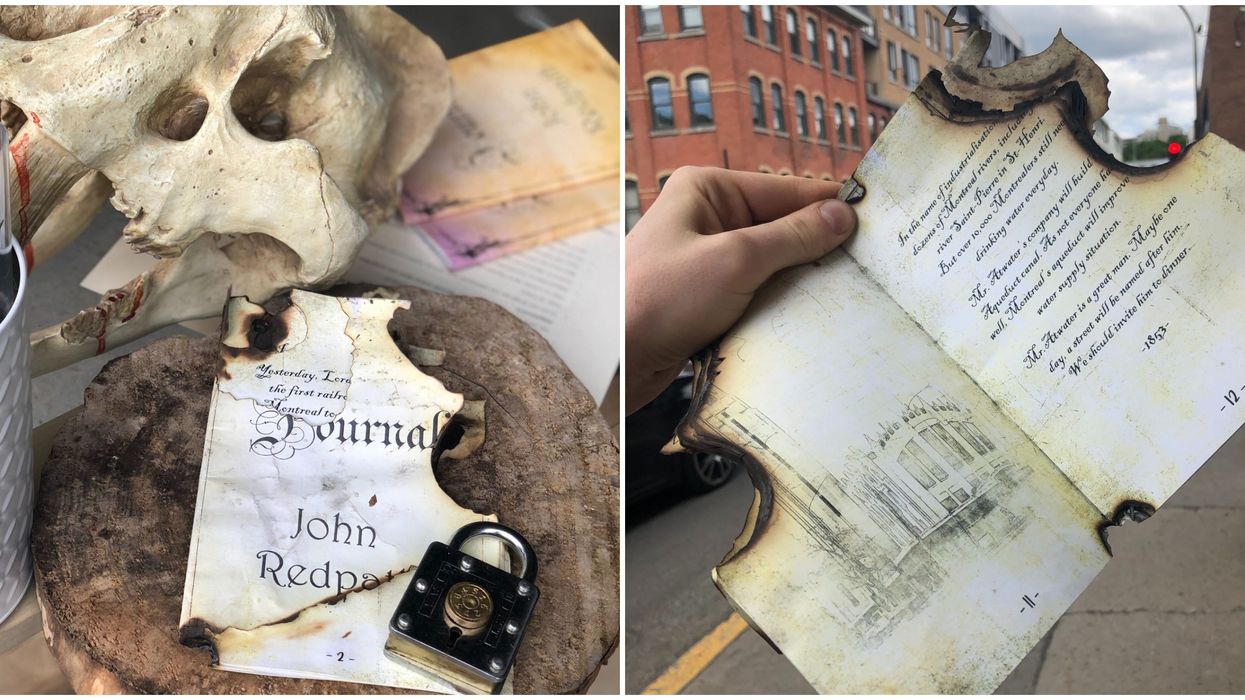 Yesterday, Lord
the first railro
Montreal to
Journal
John
Redpa
- 2 -
In the name of industrialisation
dozens of Montreal rivers, including
river Saint-Pierre in St-Henri.
But over 10,000 Montrealers still need
drinking water everyday.
Mr. Atwater's company will build
Aqueduct canal. As not everyone has
well, Montreal's aqueduct will improve
water supply situation.
Mr. Atwater is a great man. Maybe one
day, a street will be named after him.
We should invite him to dinner.
-1853-
-12-
-11-